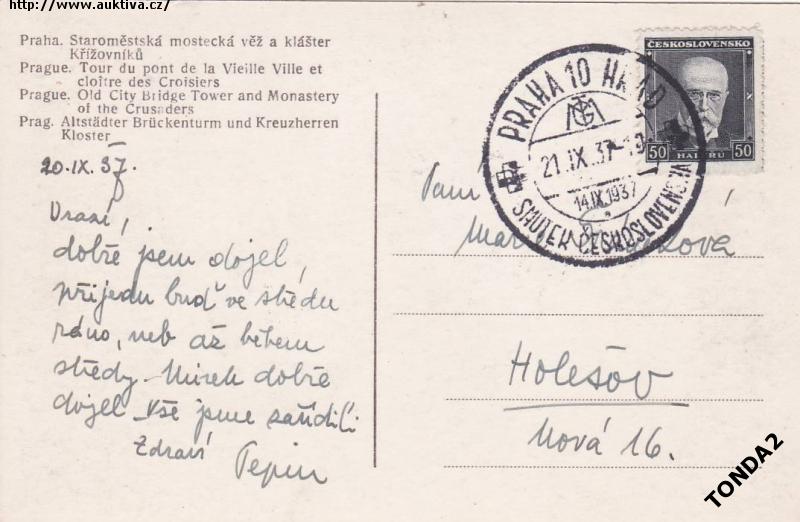 http://www.auktiva.cz/
Praha. Staroměstská mostecká věž a klášter
Křížovníků
Prague. Tour du pont de la Vieille Ville et
cloître des Croisiers
Prague. Old City Bridge Tower and Monastery
of the Crusaders
Prag. Altstädter Brückenturm und Kreuzherren
Kloster
20.IX.37.
Drazí,
dobře jsem dojel,
přijedu buď ve středu
ráno, neb až během
středy. Mirek dobře
dojel. Vše jsme zařídili
Zdraví
Pepin
ČESKOSLOVENSKO
50 HALÉŘŮ 50
PRAHA 10 HRAD
21.IX.37-19
14.IX.1937
SMUTEK ČESKOSLOVENSKA
Paní
Holešov
Nová 16.
TONDA2